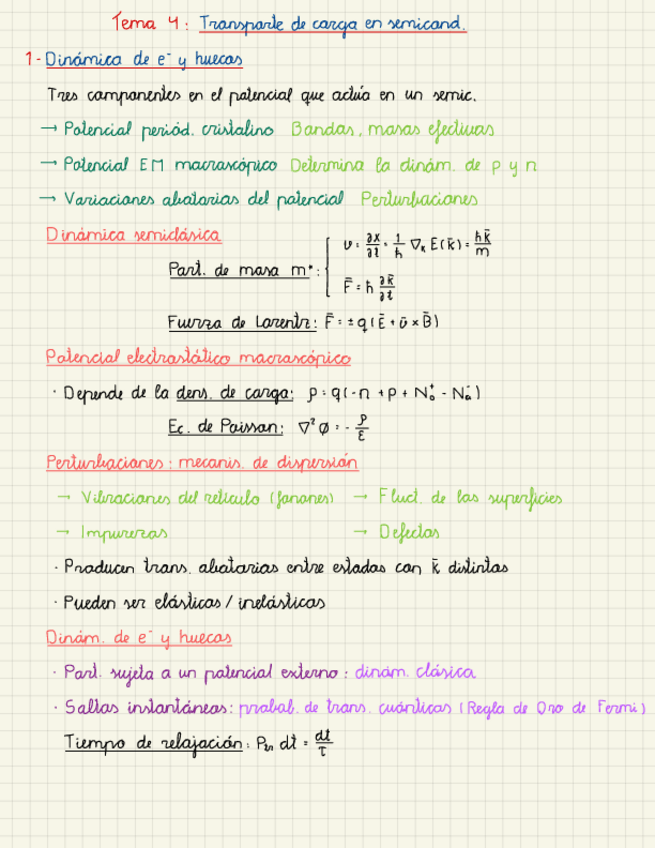 Tema 4: Transporte de carga en semicond.
1- Dinámica de e⁻ y huecos
Tres componentes en el potencial que actúa en un semic.
→ Potencial periód. cristalino Bandas, masas efectivas
→ Potencial EM macroscópico Determina la dinám. de p y n
→ Variaciones aleatorias del potencial Perturbaciones
Dinámica semiclásica
Part. de masa m*: { v = ∂x/∂t = 1/ħ ∇ₖ E(k̄) = ħk̄/m
F̄ = ħ ∂k̄/∂t
Fuerza de Lorentz: F̄ = ±q(Ē + v̄ × B̄)
Potencial electrostático macroscópico
· Depende de la dens. de carga: ρ = q(-n + p + N_D⁺ - N_A⁻)
Ec. de Poisson: ∇²φ = - ρ/ε
Perturbaciones: mecanis. de dispersión
→ Vibraciones del retículo (fonones) → Fluct. de las superficies
→ Impurezas → Defectos
· Producen trans. aleatorias entre estados con k̄ distintos
· Pueden ser elásticas / inelásticas
Dinám. de e⁻ y huecos
· Part. sujeta a un potencial externo: dinám. clásica
· Saltos instantáneos: probab. de trans. cuánticas (Regla de Oro de Fermi)
Tiempo de relajación: dt = dt/τ